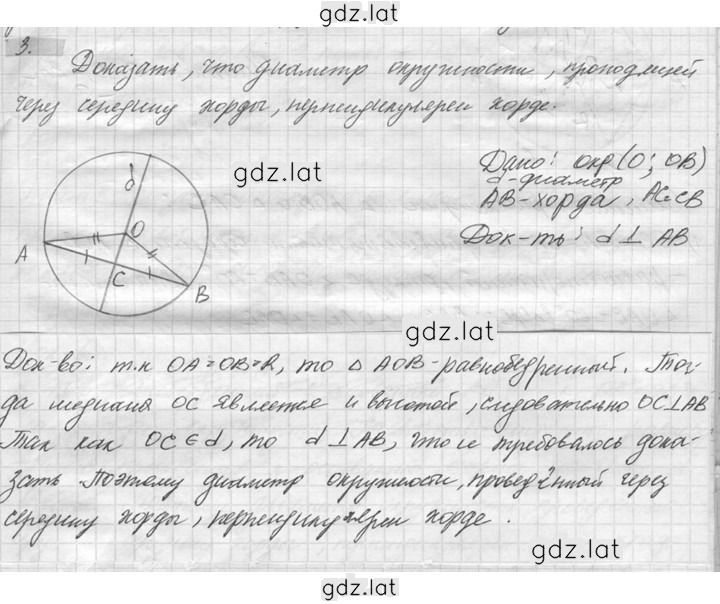 gdz.lat
3.
Доказать, что диаметр окружности, проходящей
через середину хорды, перпендикулярен хорде.
d
gdz.lat
Дано: окр(O; OB)
d-диаметр
AB-хорда, AC=CB
Док-ть: d⊥AB
O
A
C
B
gdz.lat
Док-во: т.к OA=OB=R, то △AOB-равнобедренный. Тог-
да медиана OC является и высотой, следовательно OC⊥AB
Так как OC∈d, то d⊥AB, что и требовалось дока-
зать. Поэтому диаметр окружности, проведённый через
середину хорды, перпендикулярен хорде.
gdz.lat
gdz.lat